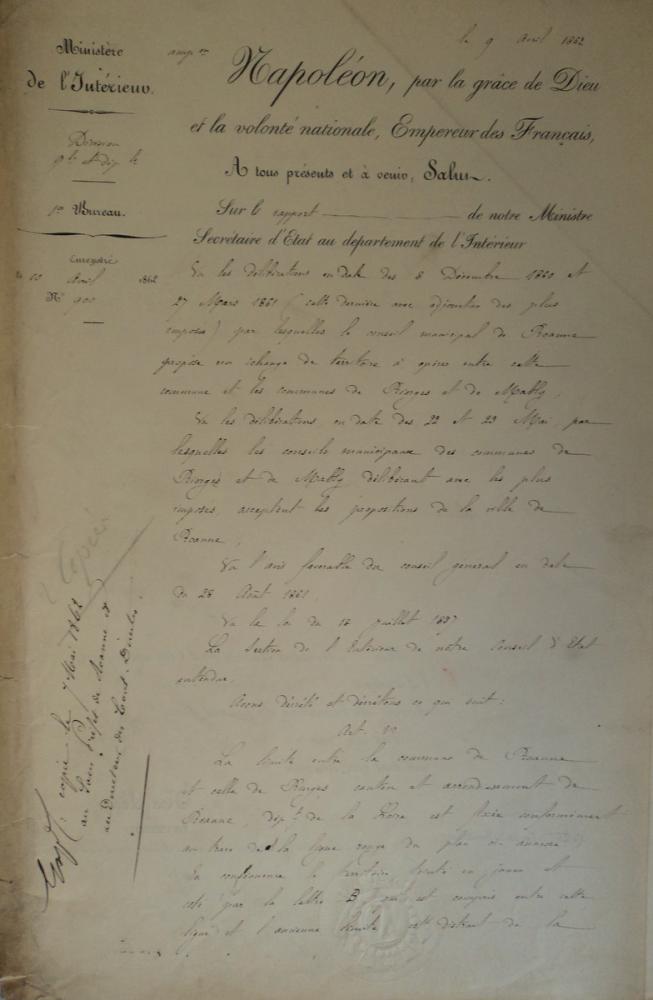 le 9 Avril 1862
Ministère
de l'Intérieur.
Division
1er Bureau.
enregistré
le 10 Avril 1862
N° 900
Napoléon, par la grâce de Dieu
et la volonté nationale, Empereur des Français,
A tous présents et à venir, Salut.
Sur le rapport de notre Ministre
Secrétaire d'Etat au département de l'Intérieur
Vu les délibérations en date des 8 Décembre 1860 et
27 Mars 1861 (cette dernière avec adjonction des plus
imposés) par lesquelles le conseil municipal de Roanne
propose un échange de territoire à opérer entre cette
commune et les communes de Riorges et de Mably,
Vu les délibérations, en date des 22 et 23 Mai, par
lesquelles les conseils municipaux des communes de
Riorges et de Mably délibérant avec les plus
imposés, acceptent les propositions de la ville de
Roanne ;
Vu l'avis favorable du conseil général en date
du 28 Août 1861,
Vu la loi du 18 juillet 1837
La Section de l'Intérieur de notre Conseil d'Etat
entendue,
Avons décrété et décrétons ce qui suit :
Art. 1er
La limite entre la commune de Roanne
et celle de Riorges, canton et arrondissement de
Roanne, dépt de la Loire est fixée conformément
au tracé de la ligne rouge du plan ci-annexé
En conséquence le territoire teinté en jaune et
coté par la lettre B qui est compris entre cette
ligne et l'ancienne limite est distrait de la
Copié
Expé copie le 7 Mai 1862
au Sous Préfet de Roanne et
au Directeur des Cont. Directes.